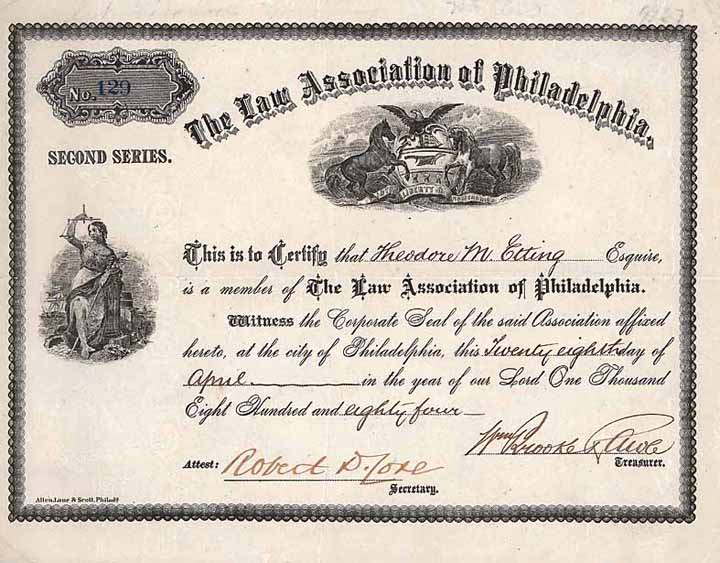 The Law Association of Philadelphia.
No. 129
SECOND SERIES.
LIBERTY
This is to Certify that Theodore M. Etting Esquire,
is a member of The Law Association of Philadelphia.
Witness the Corporate Seal of the said Association affixed
hereto, at the city of Philadelphia, this Twenty eighth day of
April in the year of our Lord One Thousand
Eight Hundred and eighty four
Wm Brooke Rawle
Treasurer.
Attest: Robert D. Coxe
Secretary.
Allen, Lane & Scott, Philad'a